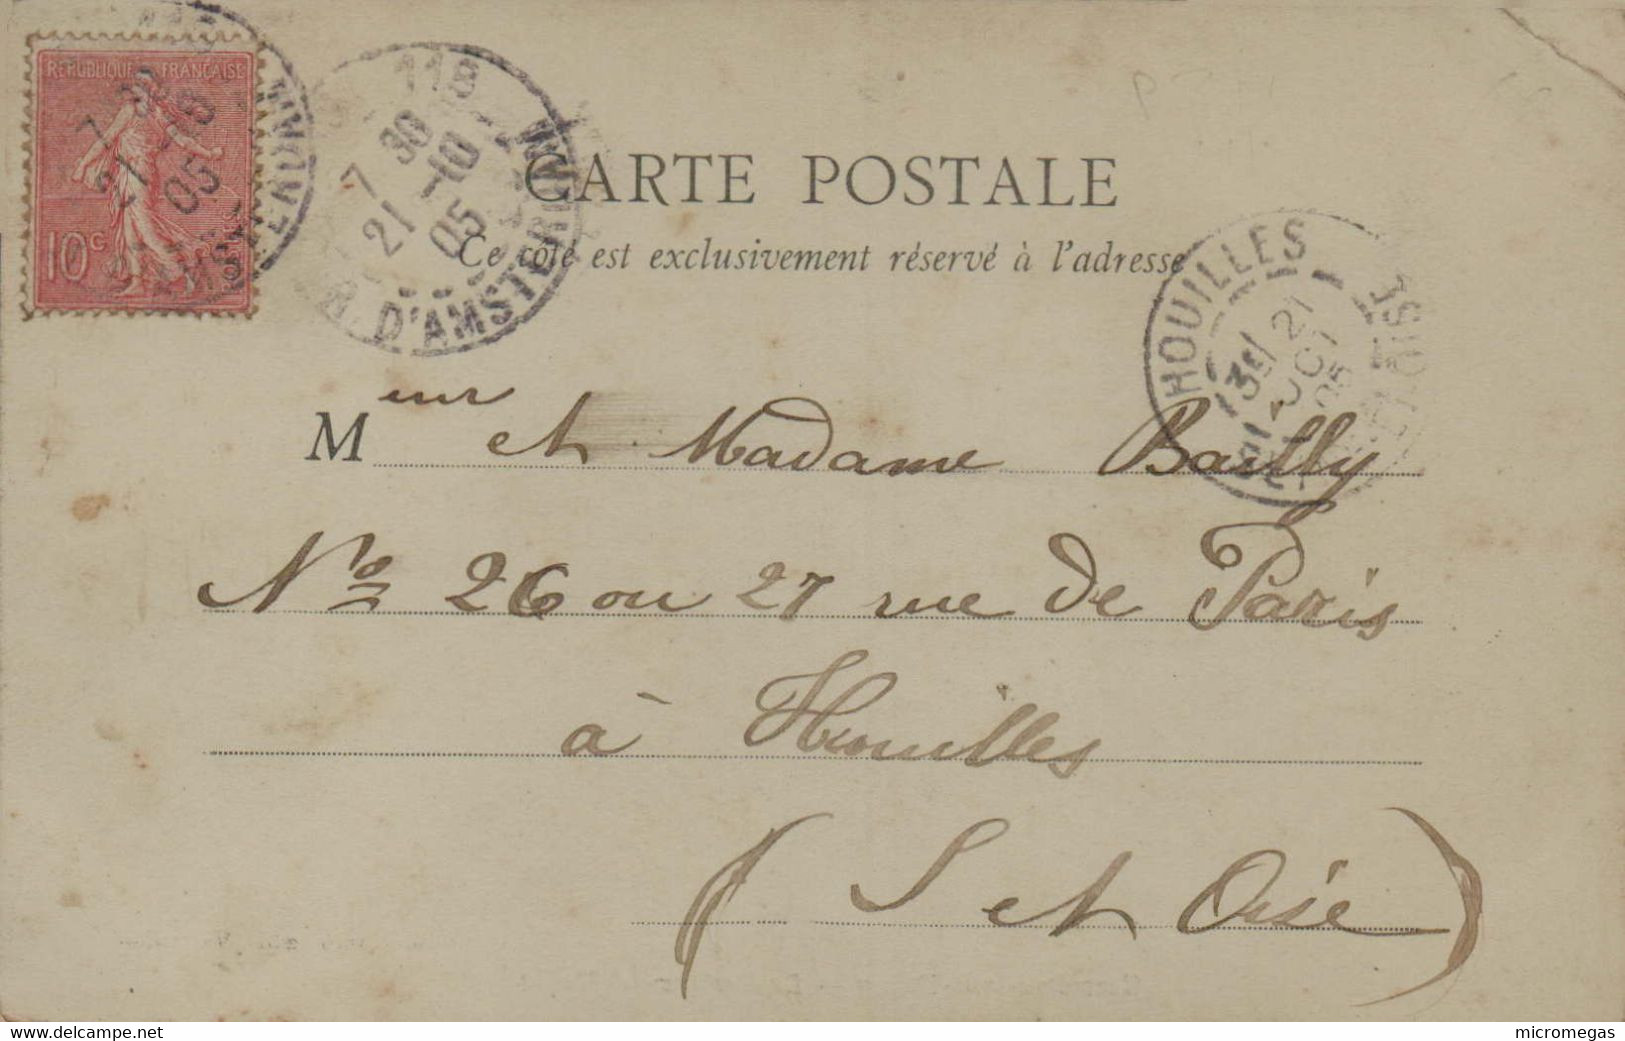 RÉPUBLIQUE FRANÇAISE
10c
7 30
21 -10
05
R. D'AMSTERDAM
118
7 30
21 -10
05
R. D'AMSTERDAM
CARTE POSTALE
Ce côté est exclusivement réservé à l'adresse
HOUILLES
21
OCT
05
Meur et Madame Bailly
No 26 ou 27 rue de Paris
à Houilles
(S et Oise)
www.delcampe.net
micromegas